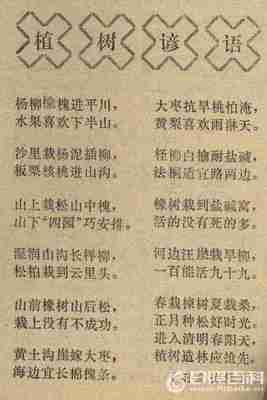 植树谚语
杨柳椿槐进平川，
水果喜欢下半山。
沙里栽杨泥插柳，
板栗核桃进山沟。
山上栽松山中槐，
山下“四园”巧安排。
湿润山沟长柞柳，
松柏栽到云里头。
山前橡树山后松，
栽上没有不成功。
黄土沟崖嫁大枣，
海边宜长棉槐条。
大枣抗旱桃怕淹，
黄梨喜欢雨淋天。
柽柳白榆耐盐碱，
法桐适宜路两边。
橡树栽到盐碱窝，
活的没有死的多。
河边汪崖栽旱柳，
一百能活九十九。
春栽椿树夏栽桑，
正月种松好时光。
进入清明春阳天，
植树造林应抢先。
百科